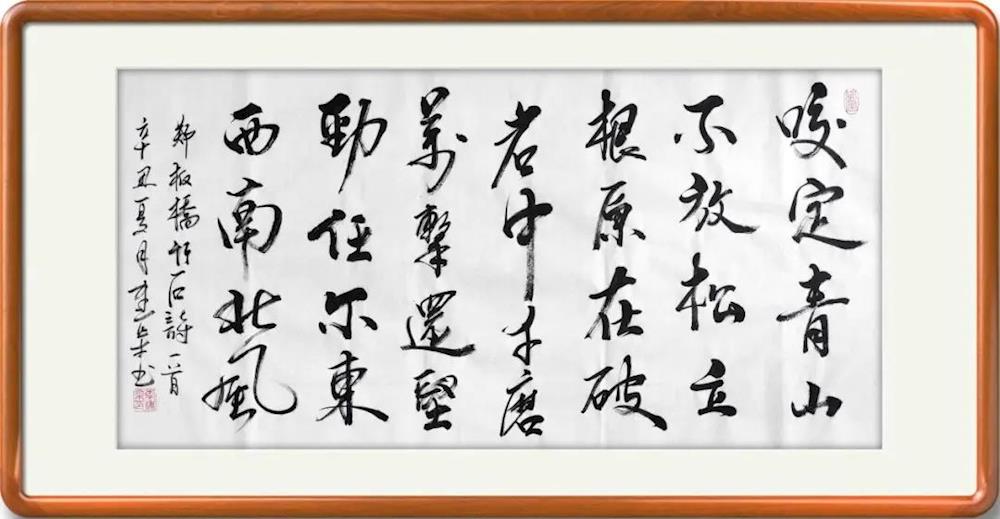 咬定青山
不放松立
根原在破
岩中千磨
萬擊還堅
勁任尔東
西南北風
郑板橋竹石詩一首
辛丑夏月书